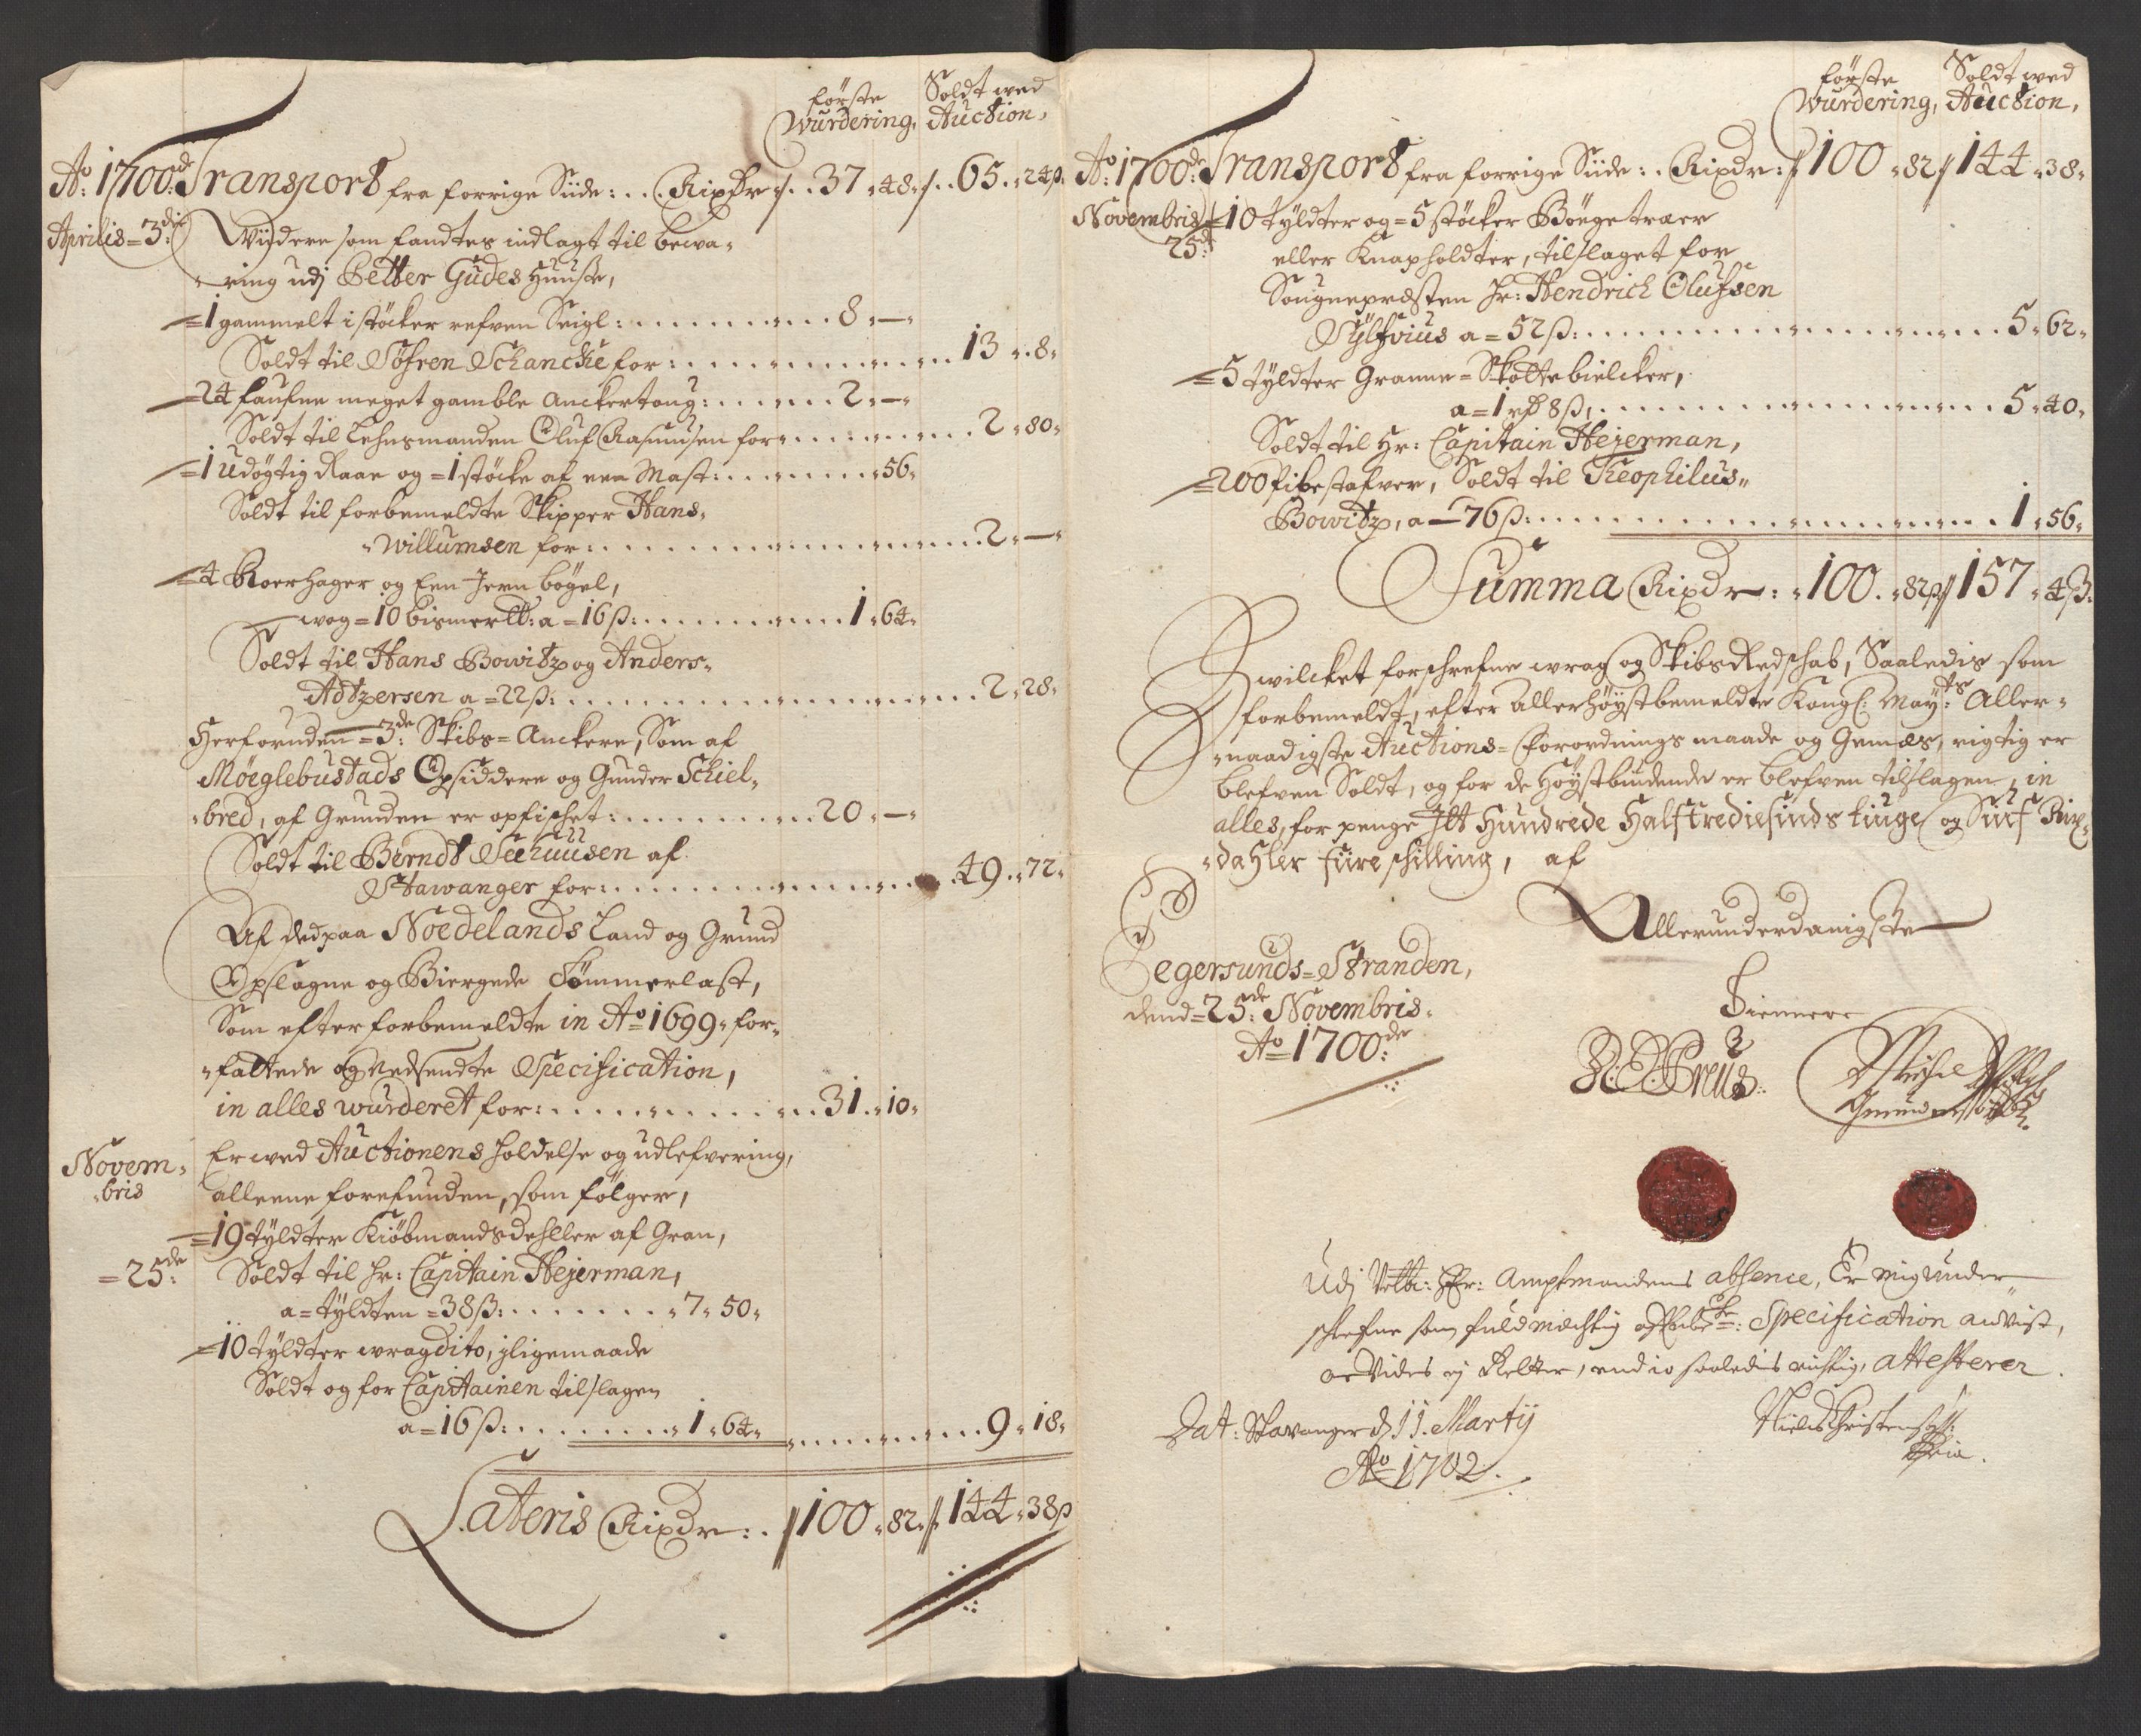 første Soldt wed
Wurdering, Auction,
Ao: 1700de Transport fra forrige Siide: . . Rixdr ./. . 37 . 48 . /. . 65 . . 24 ß
Aprilis = 3die Wijdere som fandtes indlagt til bewa-
-ring udj Petter Gudes Huuse,
= 1 gammelt i støcker refven Seigl: . . . . . . . . 8 . —
Soldt til Søfren Schancke for: . . . . . . . . . . 13 . . 8 .
= 24 faufne meget gamble Anckertoug: . . . . . . 2 . —
Soldt til Lehnsmanden Oluf Rasmusen for . . . . . . . . 2 . 80 .
= 1 udøgtig Raae og = 1 støcke af een Mast: . . . . . . . 56 .
Soldt til forbemeldte Skipper Hans
Willumsen for: . . . . . . . . . . . . 2 . —
= 4 Roerhager og Een Jern bøgel,
wog = 10 bismerlb: a = 16 ß: . . . . . . . . . 1 . 64 .
Soldt til Hans Bowitz og Anders
Adtzersen a = 22 ß: . . . . . . . . . . . . 2 . 28 .
Herforuden = 3de: Skibs = Anckere, Som af
Møglebustads Opsiddere og Gunder Schiel-
-bred, af Grunden er opfischet: . . . . . . . . . 20 . —
Soldt til Berndt Seehuusen af
Stawanger for: . . . . . . . . . . . . 49 . . 72 .
Af ded paa Noedelands Land og Grund
Opslagne og Biergede Tømmerlast,
Som efter forbemeldte in Ao 1699 . for-
-fattede og Nedsendte Specification,
in alles wurderet for: . . . . . . . . . . 31 . . 10 .
Novem-
-bris Er wed Auctionens Holdelse og udlefvering,
alleene forefunden, som følger,
= 19 tyldter Kiøbmandsdehller af Gran,
= 25de: Soldt til Hr: Capitain Hejerman,
a = tyldten = 38 ß: . . . . . . . . 7 . 50 .
= 10 tyldter wrag dito, jligemaade
Soldt og for Capitainen tilslagen
a = 16 ß: . . . . . . . . 1 . 64 . . . . . . . . 9 . 18 .
Lateris Rixdr: . // 100 . 82 . /. 144 . 38 ß
første Soldt wed
Wurdering, Auction,
Ao: 1700de: Transport fra forrige Siide: . Rixdr: // 100 . 82 // 144 . 38 .
Novembris = 10 tyldter og = 5 støcker Bøgetræer
25de: eller Knapholdter, tilslaget for
Sougnepræsten Hr: Hendrich Olufsen
Sylfvius a = 52 ß: . . . . . . . . . . . . . . 5 . 62 .
= 5 tyldter Granne = Skottebielcker,
a = 1 rd 8 ß, . . . . . . . . . . . . . . 5 . 40 .
Soldt til Hr: Capitain Hejerman,
= 200 Pibestafver, Soldt til Theophilus
Bowitz, a = 76 ß: . . . . . . . . . . . . . . 1 . 56 .
Summa Rixdr: . 100 . . 82 ß // 157 . 4 ß:
Hwilcket forschrefne wrag og Skibs Redschab, Saaledis som
forbemeldt, efter allerhøystbemeldte Kongl: Mayts: Aller-
-naadigste Auctions = forordnings maade og Gemæs, rigtig er
blefven Soldt, og for de Høystbiudende er blefven tilslagen, in
alles, for penge Jtt Hundrede Halftrediesinds tiuge og Siuf Rix-
-dahler fiire schilling, af
Allerunderdanigste
Egersunds = Stranden,
dend = 25de: Novembris
Ao 1700de:
Tiennere
Udj Velb: Hr: Amptmandens absence, Er mig under
schrefne som fuldmæchtig Specification anvist,
Vides ej Retter, end jo saaledis richtig, attesterer
Dat: Stavanger d 11. Martij
Ao 1702.
Niels Christens